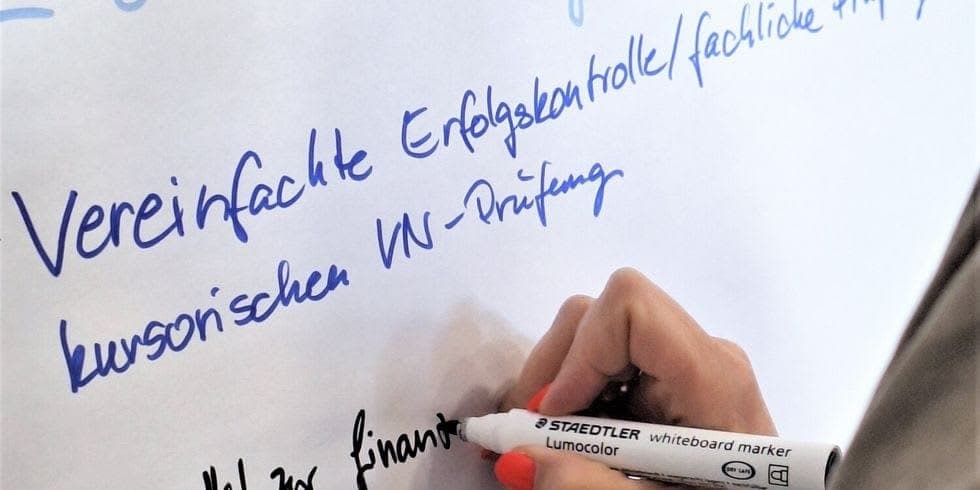 Vereinfachte Erfolgskontrolle/fachliche
kursorischen VN-Prüfung
zur finanz
STAEDTLER whiteboard marker
Lumocolor
DRY SAFE